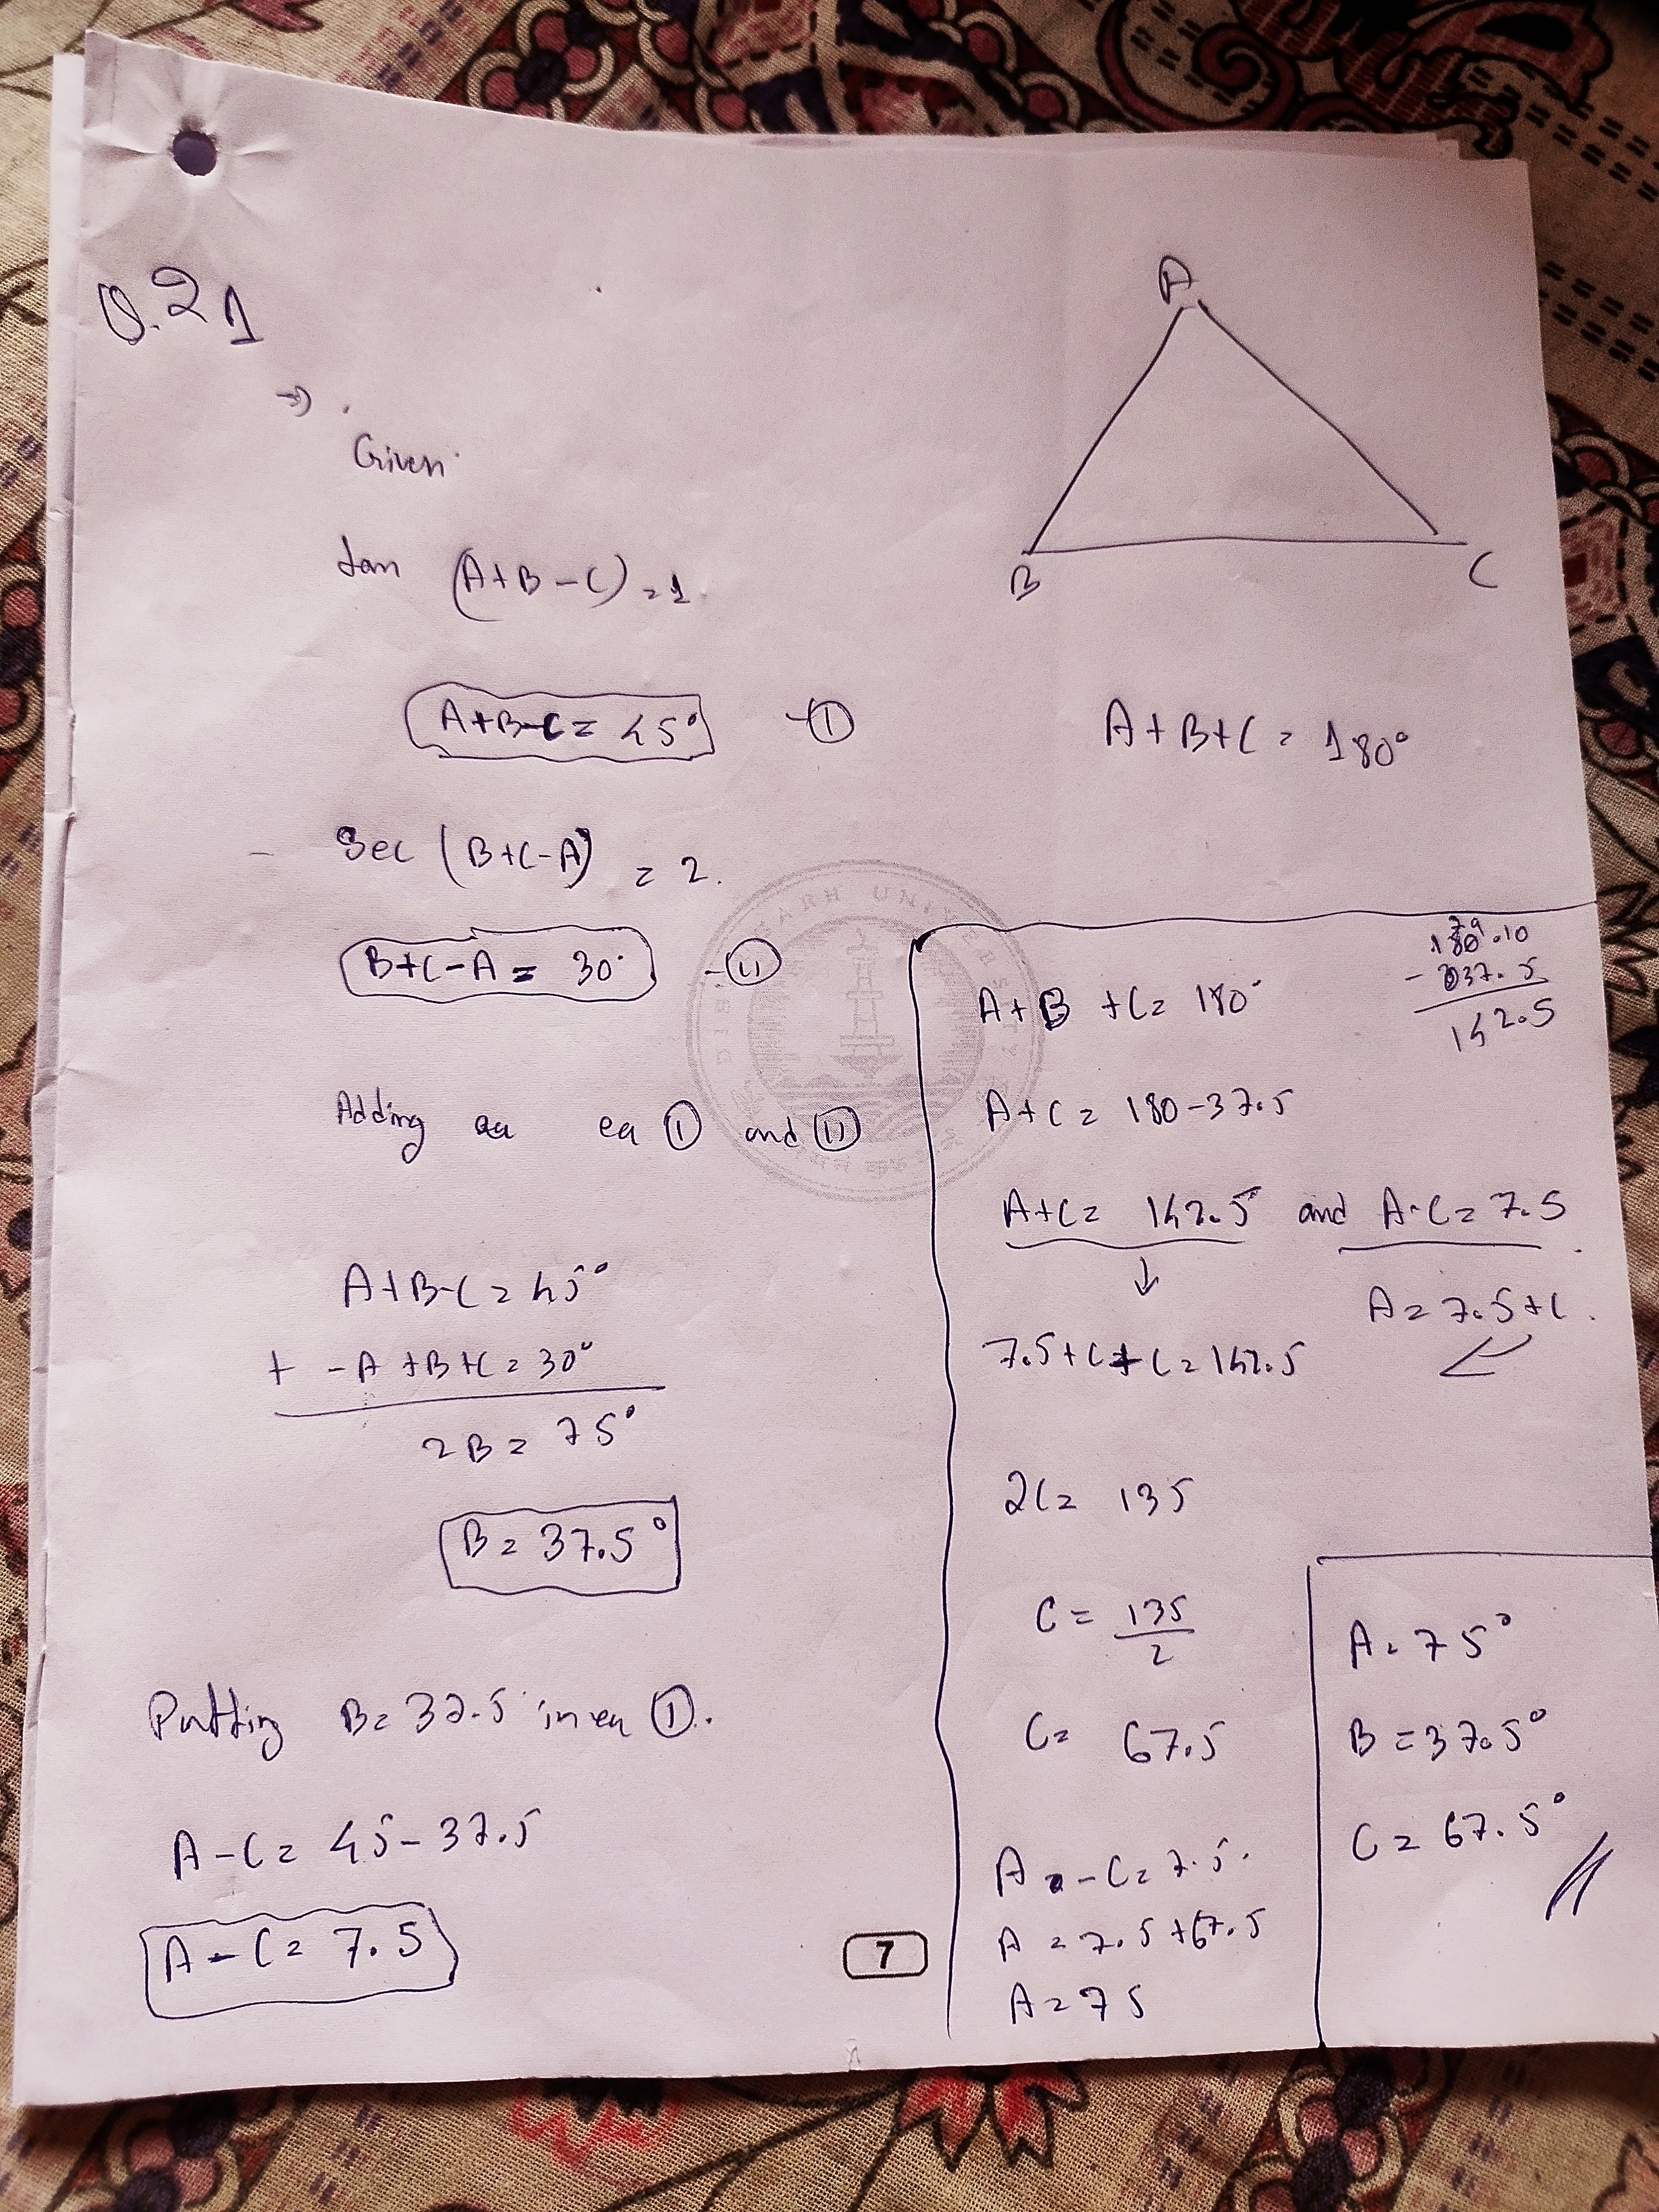 Q.21
A
B
C
→
Given
tan (A+B-C) = 1
A+B-C = 45° - (I)
A+B+C = 180°
Sec (B+C-A) = 2.
B+C-A = 30° - (II)
Adding eq (I) and (II)
A+B-C = 45°
+ -A +B+C = 30°
2B = 75°
B = 37.5°
Putting B = 37.5 in eq (I).
A-C = 45-37.5
A-C = 7.5
7
79
180.10
- 037.5
142.5
A+B+C = 180°
A+C = 180-37.5
A+C = 142.5 and A-C = 7.5
↓
A = 7.5+C.
7.5+C+C = 142.5
2C = 135
C = 135
2
C = 67.5
A - C = 7.5.
A = 7.5+67.5
A = 75
A = 75°
B = 37.5°
C = 67.5°